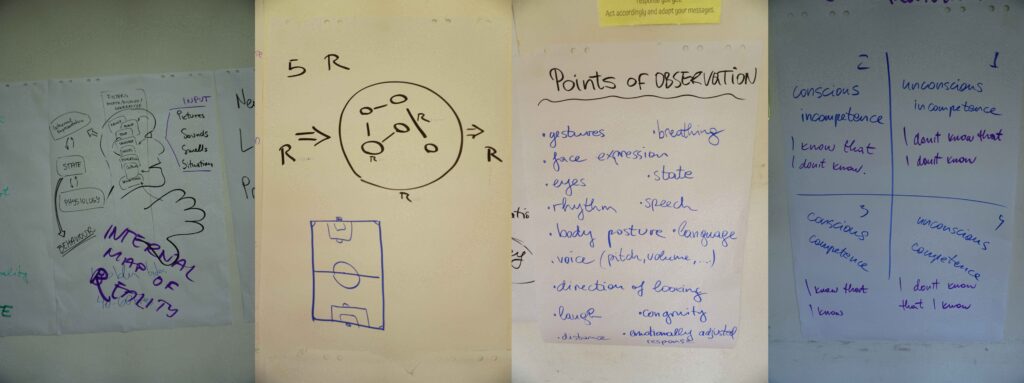 FILTERS
INPUT
Pictures
Sounds
Smells
Situation
STATE
PHYSIOLOGY
BEHAVIOUR
INTERNAL
MAP OF
REALITY
Ne
L
Pr
5 R
R
R
R
R
R
response you get.
Act accordingly and adapt your messages.
Points of OBSERVATION
• gestures • breathing
• face expression
• eyes • state
• rhythm • speech
• body posture • language
• voice (pitch, volume, ...)
• direction of looking
• laugh • congruity
• distance • emotionally adjusted
response
2
conscious
incompetence
I know that
I don't know.
1
unconscious
incompetence
I don't know that
I don't know
3
conscious
competence
I know that
I know
4
unconscious
competence
I don't know
that I know